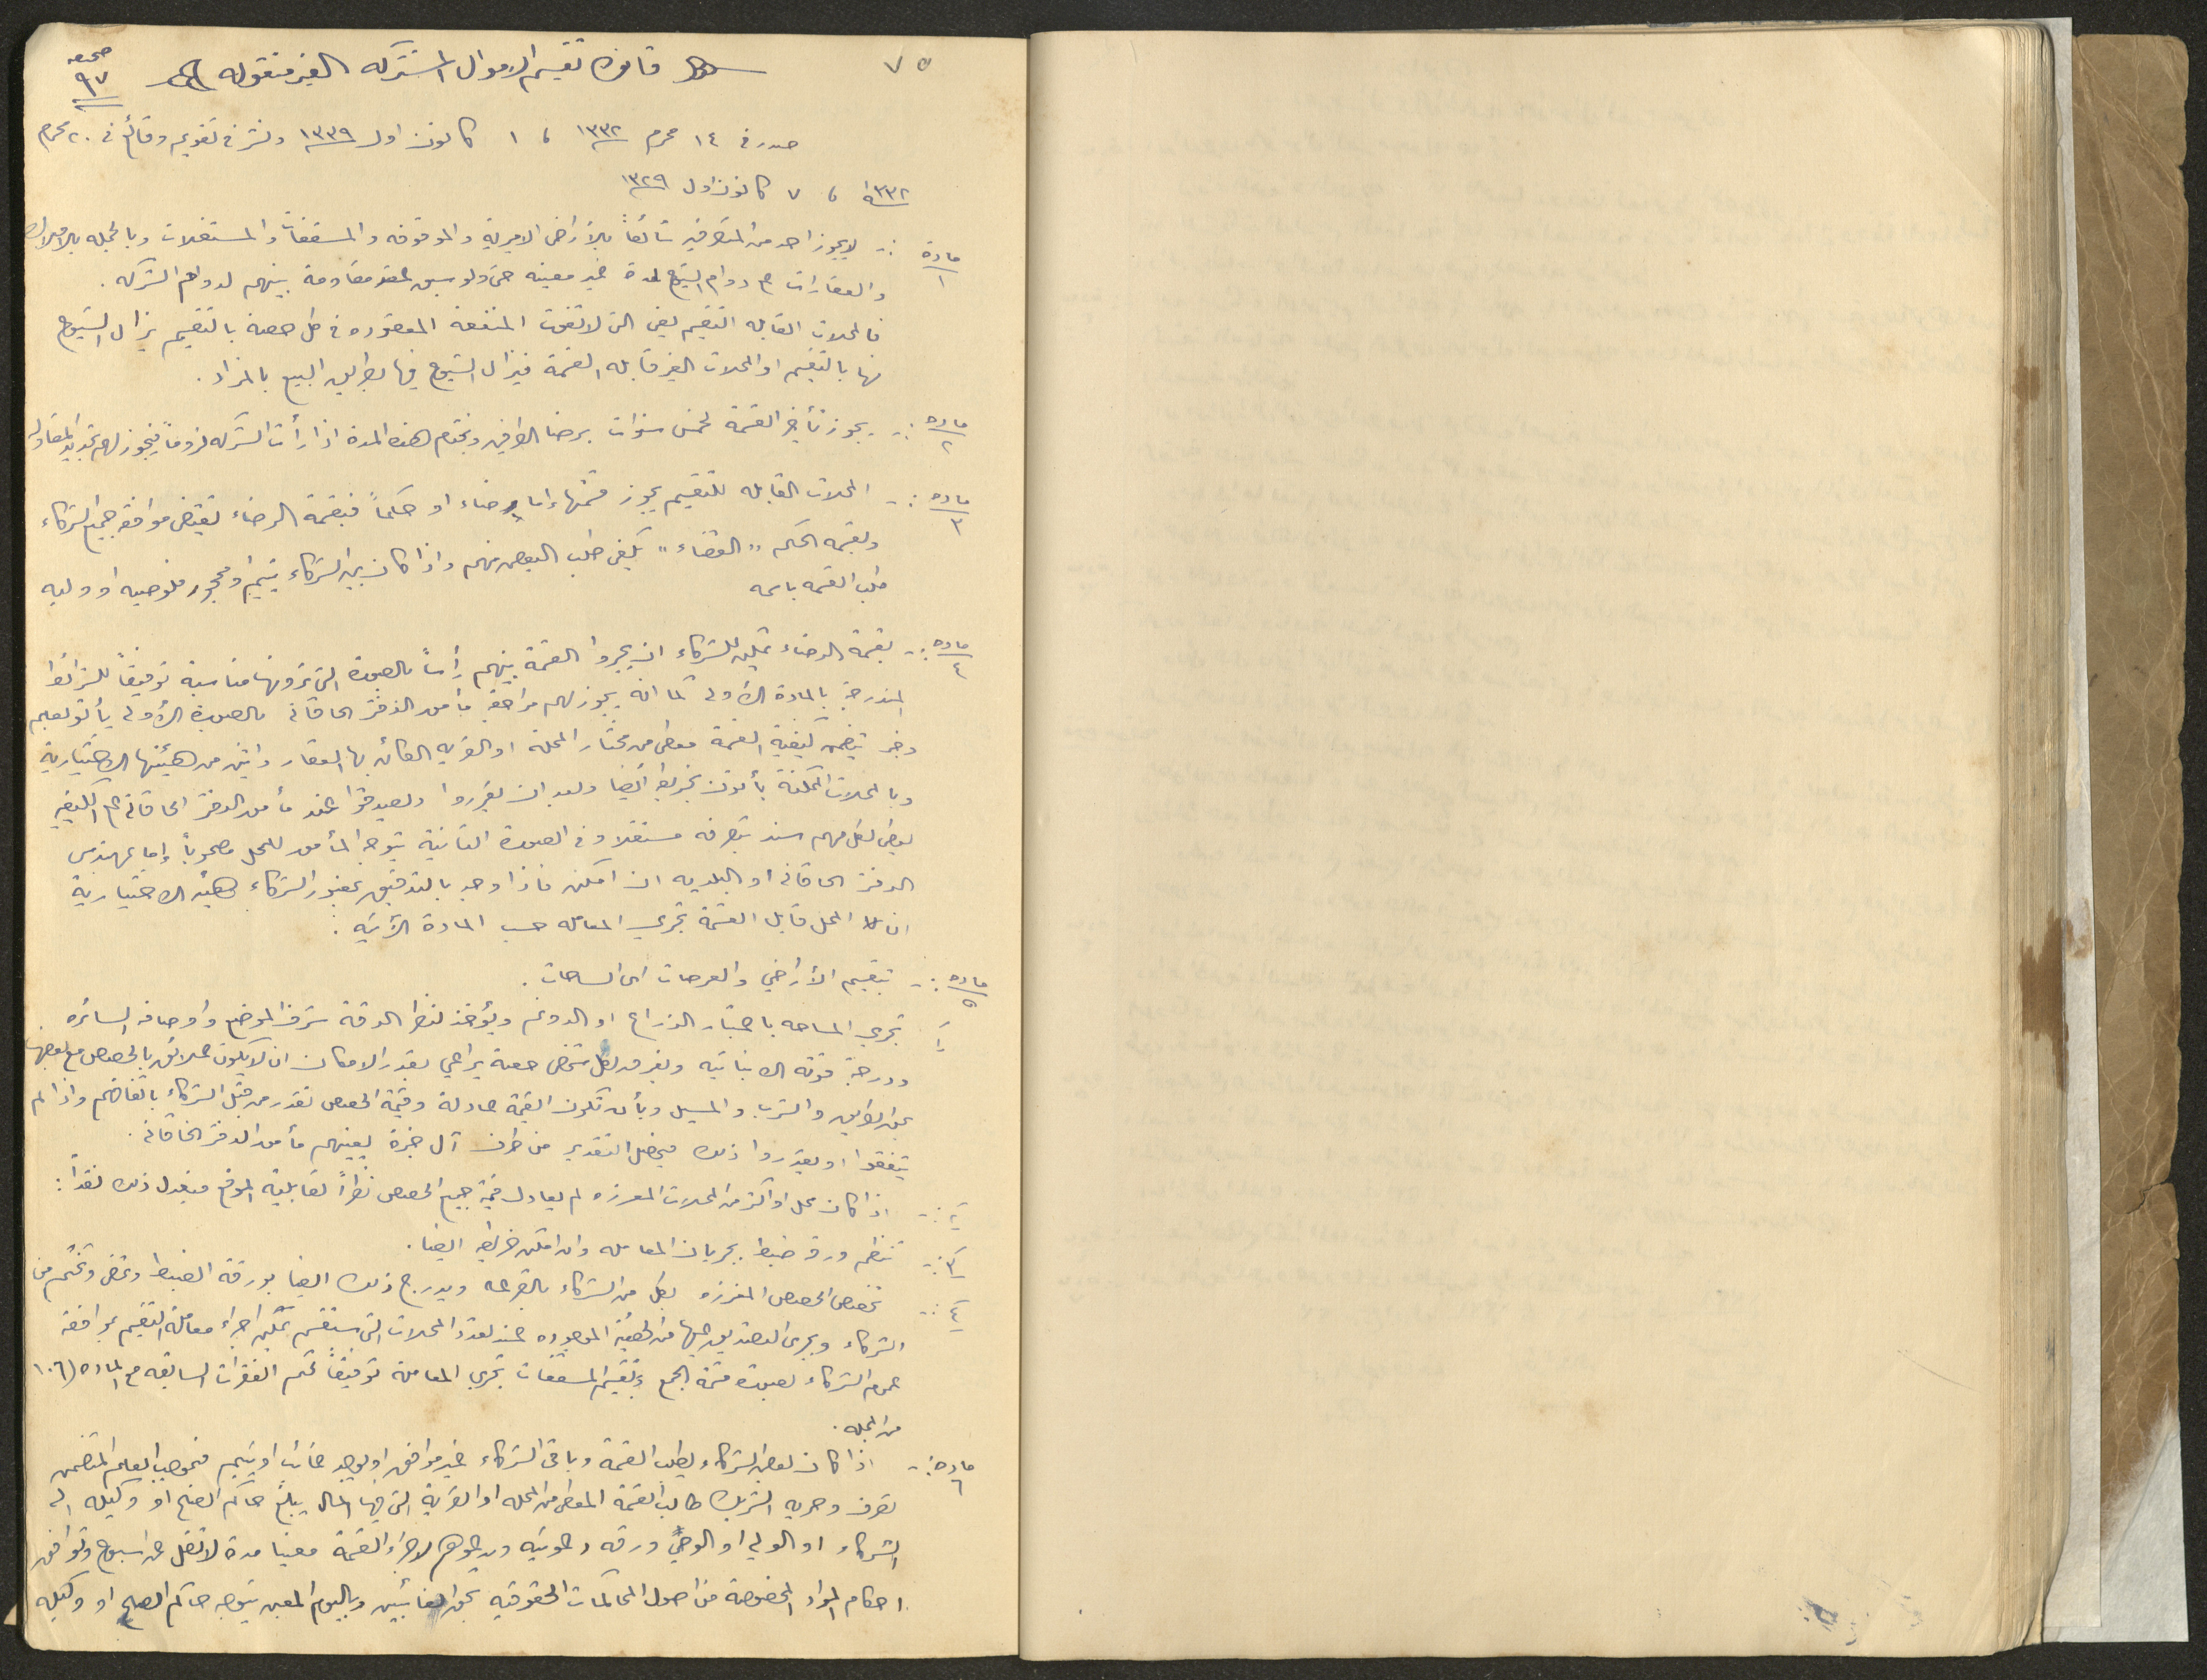 ٧٥
صحيفة
٩٧
قانون تقسيم الاموال المشتركه الغير منقوله
صدر في ١٤ محرم ١٣٣٢ ، ١ كانون اول ١٣٣٩ ونشر في تقويم وقائع في ٢٠ محرم
١٣٣٢ ، ٧ كانون اول ١٣٢٩
مادة ١ :- لا يجوز احد من المتصرفين شائعاً بالأراضي الاميرية والموقوفه والمسقفات والمستغلات وبالجمله بالاملاك
والعقارات على دوام الشيوع لمدة غير معينه حتى ولو سبق لعقد مقاومة بينهم لدوام الشركه .
فالمحلات القابله التقسيم يعني التي لا تفوت المنفعة المقصوده في كل حصة بالتقسيم يزال الشيوع
منها بالتقسيم او المحلات الغير قابله القسمة فيزال الشيوع فيها بطريق البيع بالمزاد .
ماده ٢ :- يجوز تأخير القسمة لخمس سنوات برضا الطرفين وبختام هذه المدة اذا رأت الشركه لزوماً فيجوز لهم تجديد المقاوله
ماده ٣ :- المحلات القابله للتقسيم يجوز قسمتها إما رضاء او حكماً فبقسمة الرضاء يقتضي موافقه جميع الشركاء
وبقسمه الحكم "القضاء" يكفي طلب البعض منهم واذا كان بين الشركاء يتيم او محجور فلوصيه او وليه
طلب القسمه باسمه
ماده ٤ :- بقسمة الرضاء يمكن للشركاء ان يجروا القسمة بينهم رأساً بالصورة التي يرونها مناسبة توفيقاً للشرائط
المندرجة بالمادة الأولى كما انه يجوز لهم مراجعة مأمور الدفتر الخاقاني بالصورة الأولى يأتو بعلم
وخبر يتضمن كيفية القسمة معطى من مختار المحلة او القريه الكائن بها العقار واثنين من هيئتها الاختيارية
وبالمحلات الممكنة يأتون بخريطه أيضا وبعد ان يقرروا ويصدقوا عند مأمور الدفتر الخاقاني على الكيفيه
يعطى لكل منهم سند بتصرفه مستقلا وفي الصورة الثانية يتوجه المأمور للمحل مصحوباً إما بمهندس
الدفتر الخاقاني او البلديه ان امكن فاذا وجد بالتدقيق بحضور الشركاء وهيئه الاختيارية
ان المحل قابل القسمة تجري المعامله حسب المادة الآتيه :
ماده ٥ :- بتقسيم الأراضي والعرصات اى الساحات .
١ً تجري المساحه باعتبار الذراع او الدونم ويؤخذ لنظر الدقة شرف الموضع وأوصافه السائره
ودرجة قوته الانباتيه ويفرد لكل شخص حصة يراعي بقدر الامكان ان لا يكون علائق بالحصص مع بعضها
بحق الطريق والشرب والمسيل وبأن تكون القسمة عادلة وقيمة الحصص تقدر من قبل الشركاء باتفاقهم واذا لم
يتفقوا او يقدروا ذلك فيحصل التقدير من طرف آل خبرة يعينهم مأمور الدفتر الخاقاني .
٢ً :- اذا كان محل او اكثر من المحلات المفرزه لم يعادل قيمة جميع الحصص نظراً لقابلية الموقع فيعدل ذلك نقداً :
٣ً :- تنظم ورقه ضبط بجريان المعامله وان امكن خريطه ايضا .
٤ً :- تخصص الحصص المفرزه لكل من الشركاء بالقرعه ويدرج ذلك ايضا بورقة الضبط وتمضى وتختم من
الشركاء ويجرى التصديق عليها من الهيئة الموجوده عند تعدد المحلات التي ستقسم يمكن اجراء معاملة التقسيم بموافقة
عموم الشركاء بصورة قسمة الجمع وبتقسيم المسقفات تجري المعاملة توفيقاً لحكم الفقرات السابقه مع الماده (١٠٦
من المجله .
ماده ٦ :- اذا كان بعض الشركاء يطلب القسمة وباقي الشركاء غير موافق او يوجد غائب او يتيم فبموجب العلم المتضمن
تصرف وحريه الشريك طالب القسمة المعطى من المحله او القرية التي فيها المال يبلغ حاكم الصلح او وكيله الى
الشركاء او الولي او الوصي ورقه دعوتيه ويدعوهم لاجراء القسمة معينا مدة لا تقل عن اسبوع وتوافق
احكام المواد المخصوصة من اصول المحاكمات الحقوقيه بحق الغائبين وباليوم المعين يتوجه حاكم الصلح او وكيله